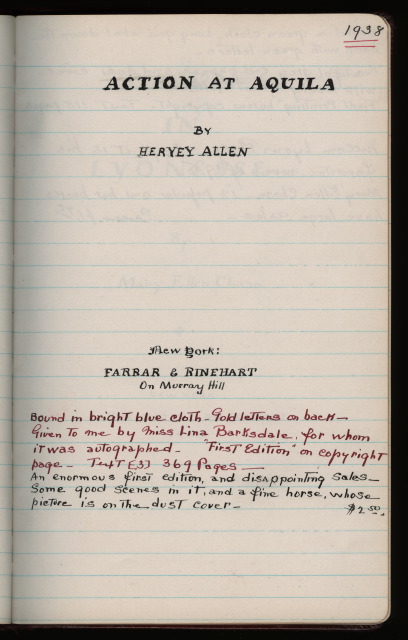 1938
ACTION AT AQUILA
BY
HERVEY ALLEN
New York:
FARRAR & RINEHART
On Murray Hill
Bound in bright blue cloth - Gold letters on back -
Given to me by Miss Lina Barksdale, for whom
it was autographed - "First Edition" on copyright
page - 369 Pages -
An enormous first edition, and disappointing sales -
Some good scenes in it, and a fine horse, whose
picture is on the dust cover - $2.50.